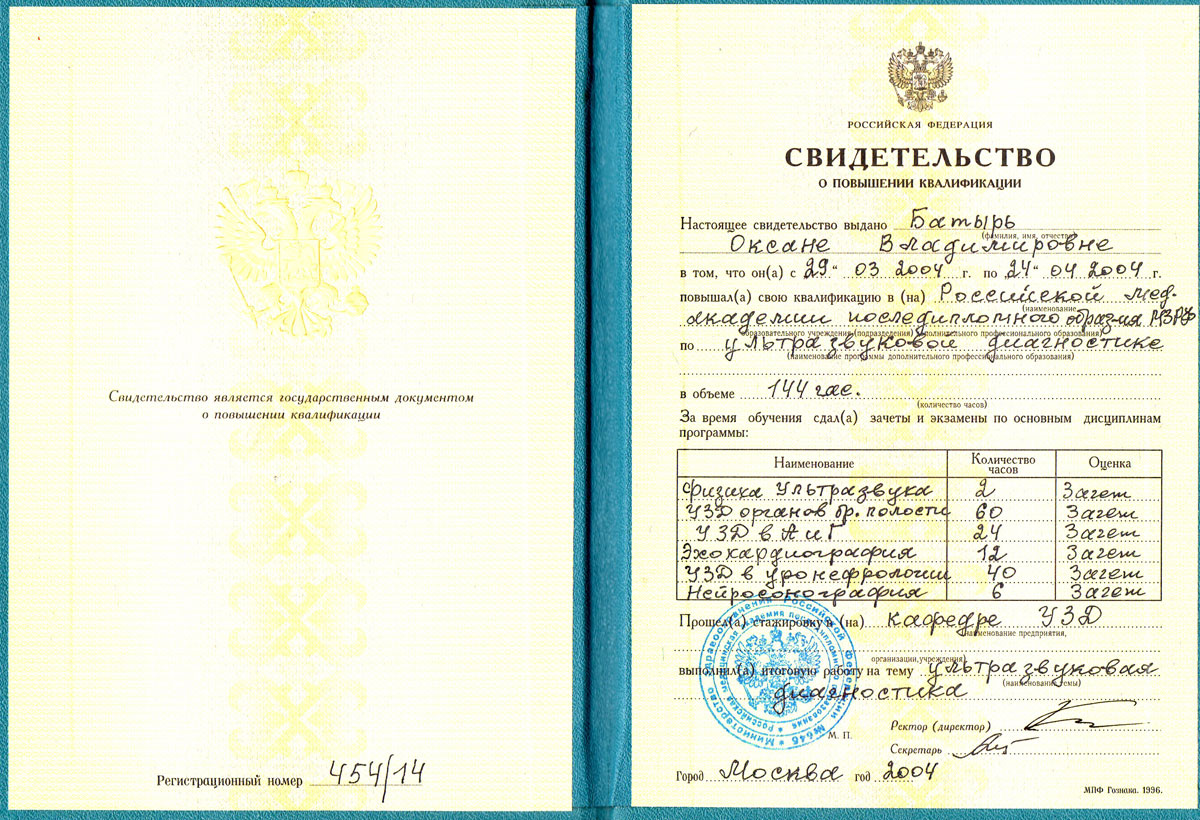 Свидетельство является государственным документом
о повышении квалификации
Регистрационный номер 454/14
РОССИЙСКАЯ ФЕДЕРАЦИЯ
СВИДЕТЕЛЬСТВО
О ПОВЫШЕНИИ КВАЛИФИКАЦИИ
Настоящее свидетельство выдано Батырь
(фамилия, имя, отчество)
Оксане Владимировне
в том, что он(а) с 29" 03 2004 г. по 24" 04 2004 г.
повышал(а) свою квалификацию в (на) Российской мед.
(наименование
академии последипломного образ-ия МЗ РФ
образовательного учреждения (подразделения) дополнительного профессионального образования)
по ультразвуковой диагностике
(наименование программы дополнительного профессионального образования)
в объеме 144 час.
(количество часов)
За время обучения сдал(а) зачеты и экзамены по основным дисциплинам
программы:
Наименование Количество часов Оценка
Физика Ультразвука 2 Зачет
УЗД органов бр. полости 60 Зачет
УЗД в А и Г 24 Зачет
Эхокардиография 12 Зачет
УЗД в уронефрологии 40 Зачет
Нейросонография 6 Зачет
Прошел(а) стажировку в (на) кафедре УЗД
(наименование предприятия,
организации, учреждения)
выполнил(а) итоговую работу на тему ультразвуковая
(наименование темы)
диагностика
Ректор (директор)
М. П.
Секретарь
Город Москва год 2004
МПФ Гознака. 1996.
Министерство здравоохранения Российской Федерации №646
Российская медицинская академия последипломного образования